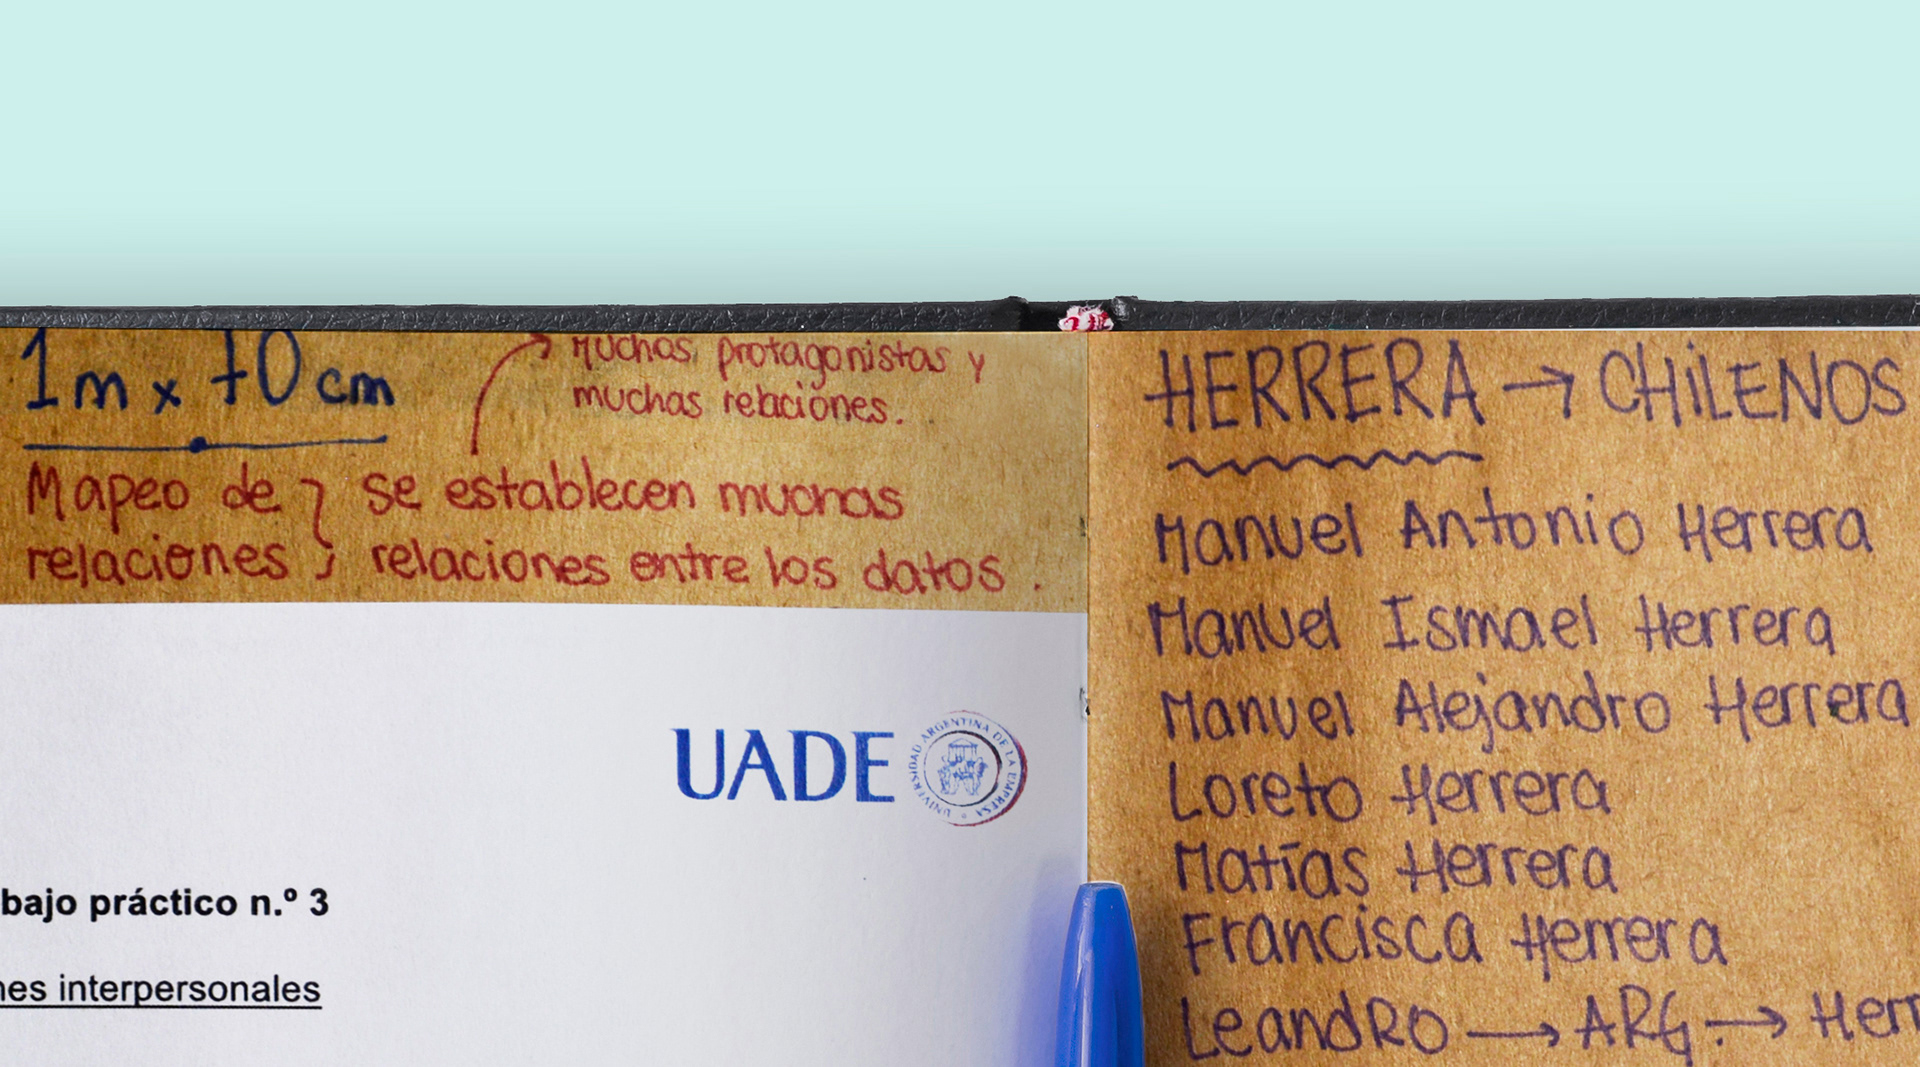 1m x 70 cm
Muchos protagonistas y
muchas relaciones.
Mapeo de } se establecen muchas
relaciones } relaciones entre los datos.
UADE
UNIVERSIDAD ARGENTINA DE LA EMPRESA
bajo práctico n.º 3
nes interpersonales
HERRERA → CHiLENOS
Manuel Antonio Herrera
Manuel Ismael Herrera
Manuel Alejandro Herrera
Loreto Herrera
Matías Herrera
Francisca Herrera
Leandro → ARG. → Herr